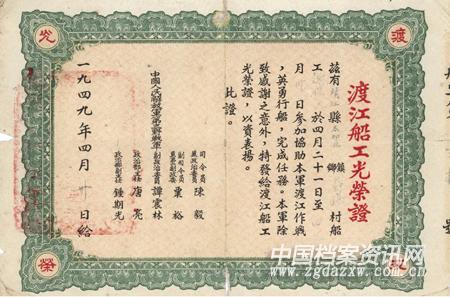 渡
光
渡江船工光榮證
茲有 縣 鎮鄉 村船
工 於四月二十一日至
月 日參加協助本軍渡江作戰
,英勇行船,完成任務。本軍除
致感謝之意外,特發給渡江船工
光榮證,以資表揚。
此證。
中國人民解放軍第三野戰軍
司令員兼政治委員 陳毅
副司令員 粟裕
副政治委員 譚震林
政治部主任 唐亮
政治部副主任 鍾期光
一九四九年四月廿 日給
榮
中国档案资讯网
www.zgdazxw.com.cn